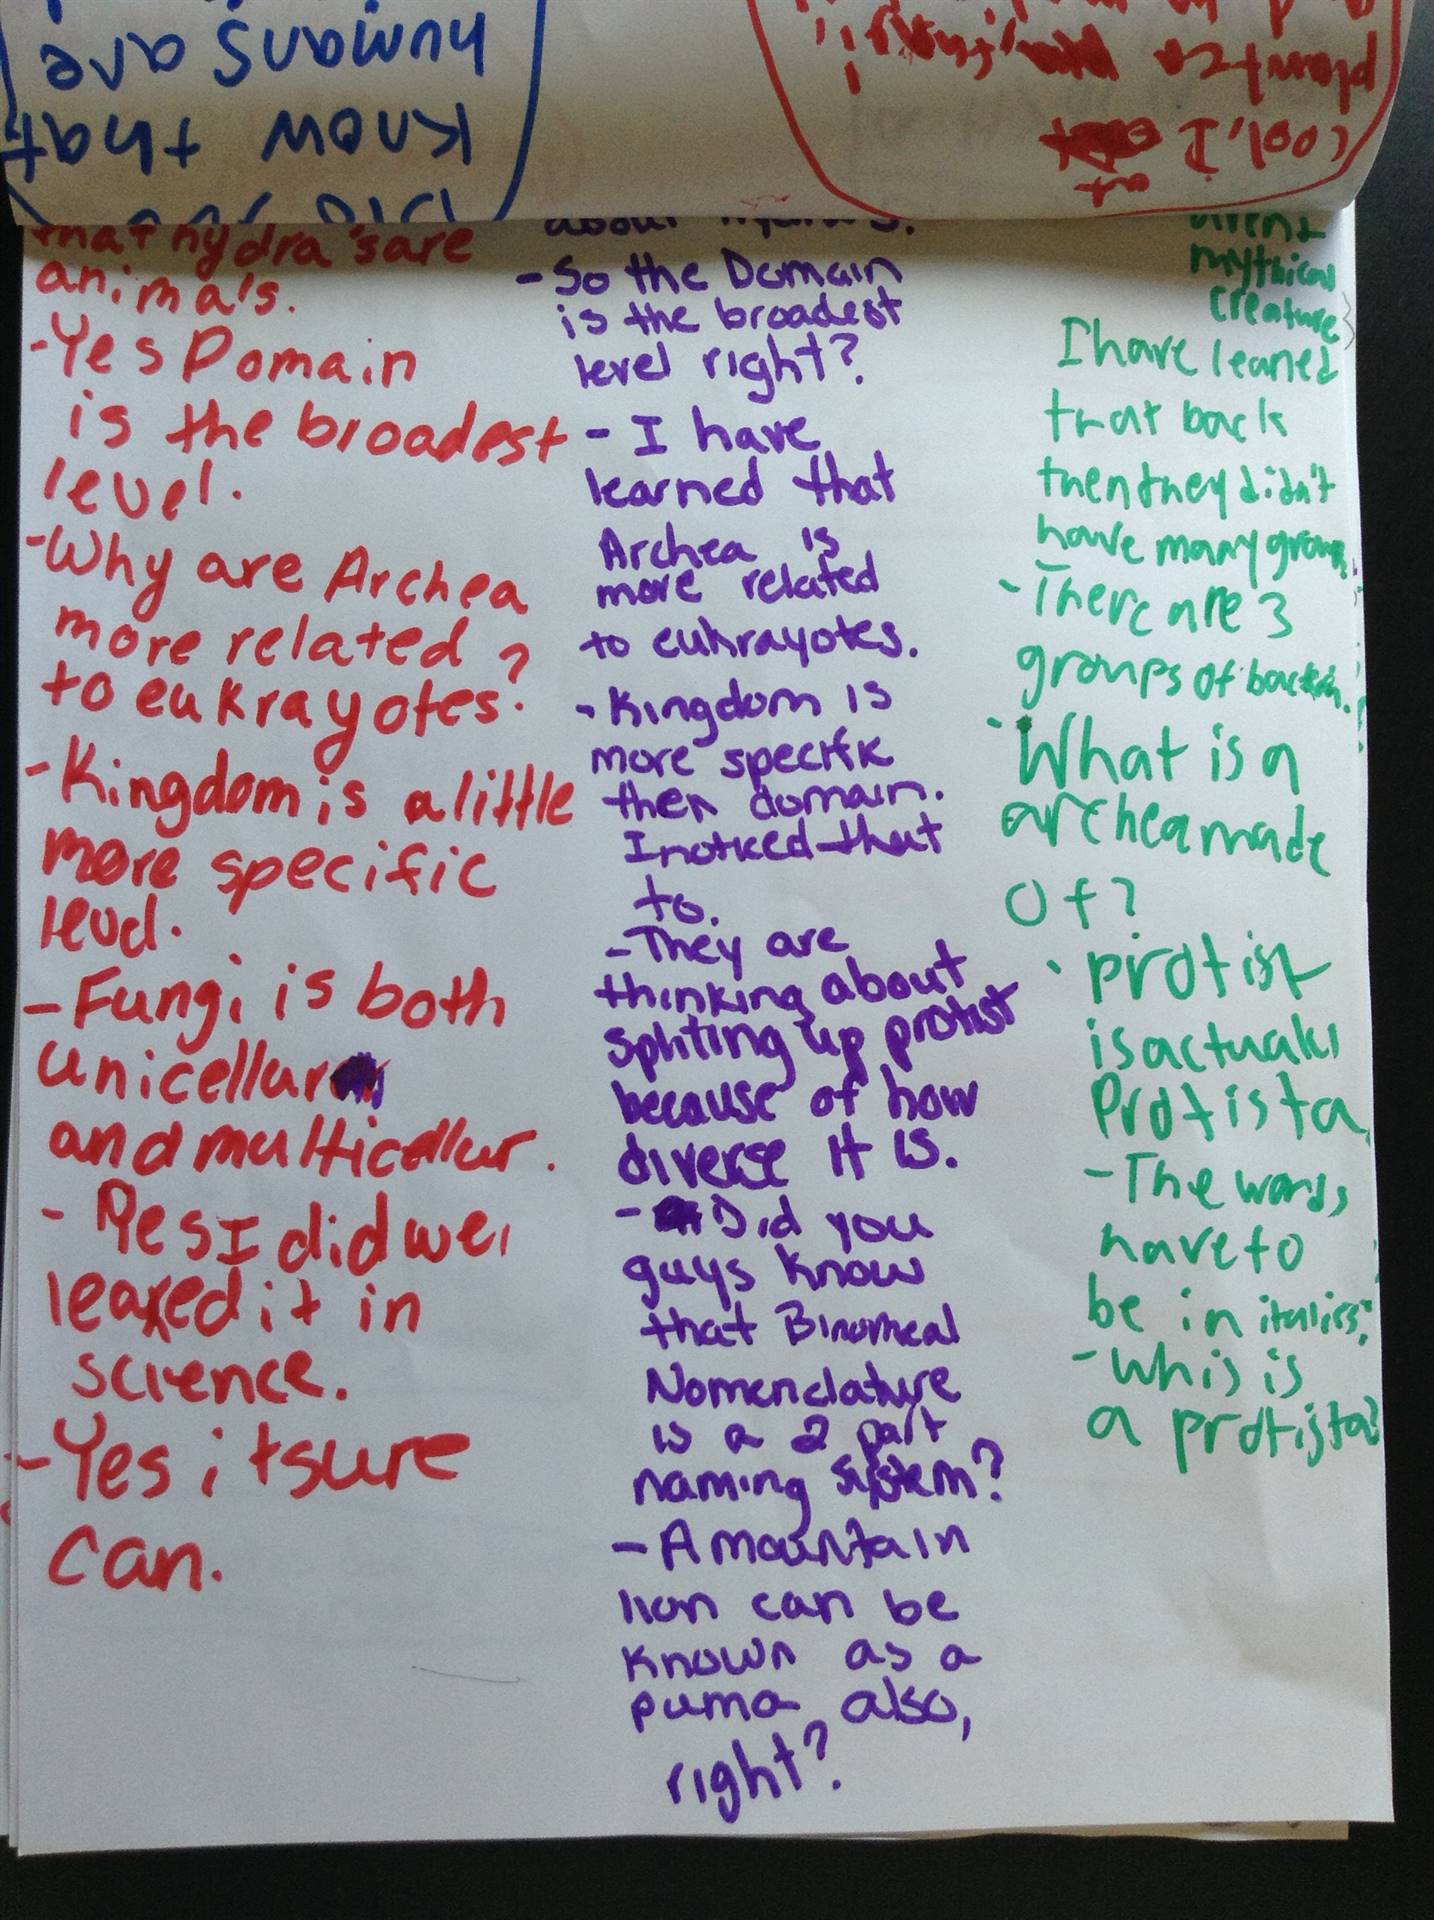 humans are
know that
Did you
plants
cool, I
that hydra's are
animals.
-Yes Domain
is the broadest
level.
-Why are Archea
more related
to eukrayotes?
-Kingdom is a little
more specific
level.
-Fungi is both
unicellur
and multicellur.
- Yes I did we
learned it in
science.
-Yes it sure
can.
about
-So the Domain
is the broadest
level right?
-I have
learned that
Archea is
more related
to eukrayotes.
-Kingdom is
more specific
then domain.
I noticed that
to.
-They are
thinking about
spliting up protist
because of how
diverse it is.
- Did you
guys know
that Binomeal
Nomenclature
is a 2 part
naming system?
-A mountain
lion can be
known as a
puma also,
right?
mythical
creature
I have leaned
that back
then they didn't
have many groups
-There are 3
groups of
-What is a
archea made
of?
protist
is actuaki
Protista,
-The words
have to
be in italics.
-Whis is
a protista?